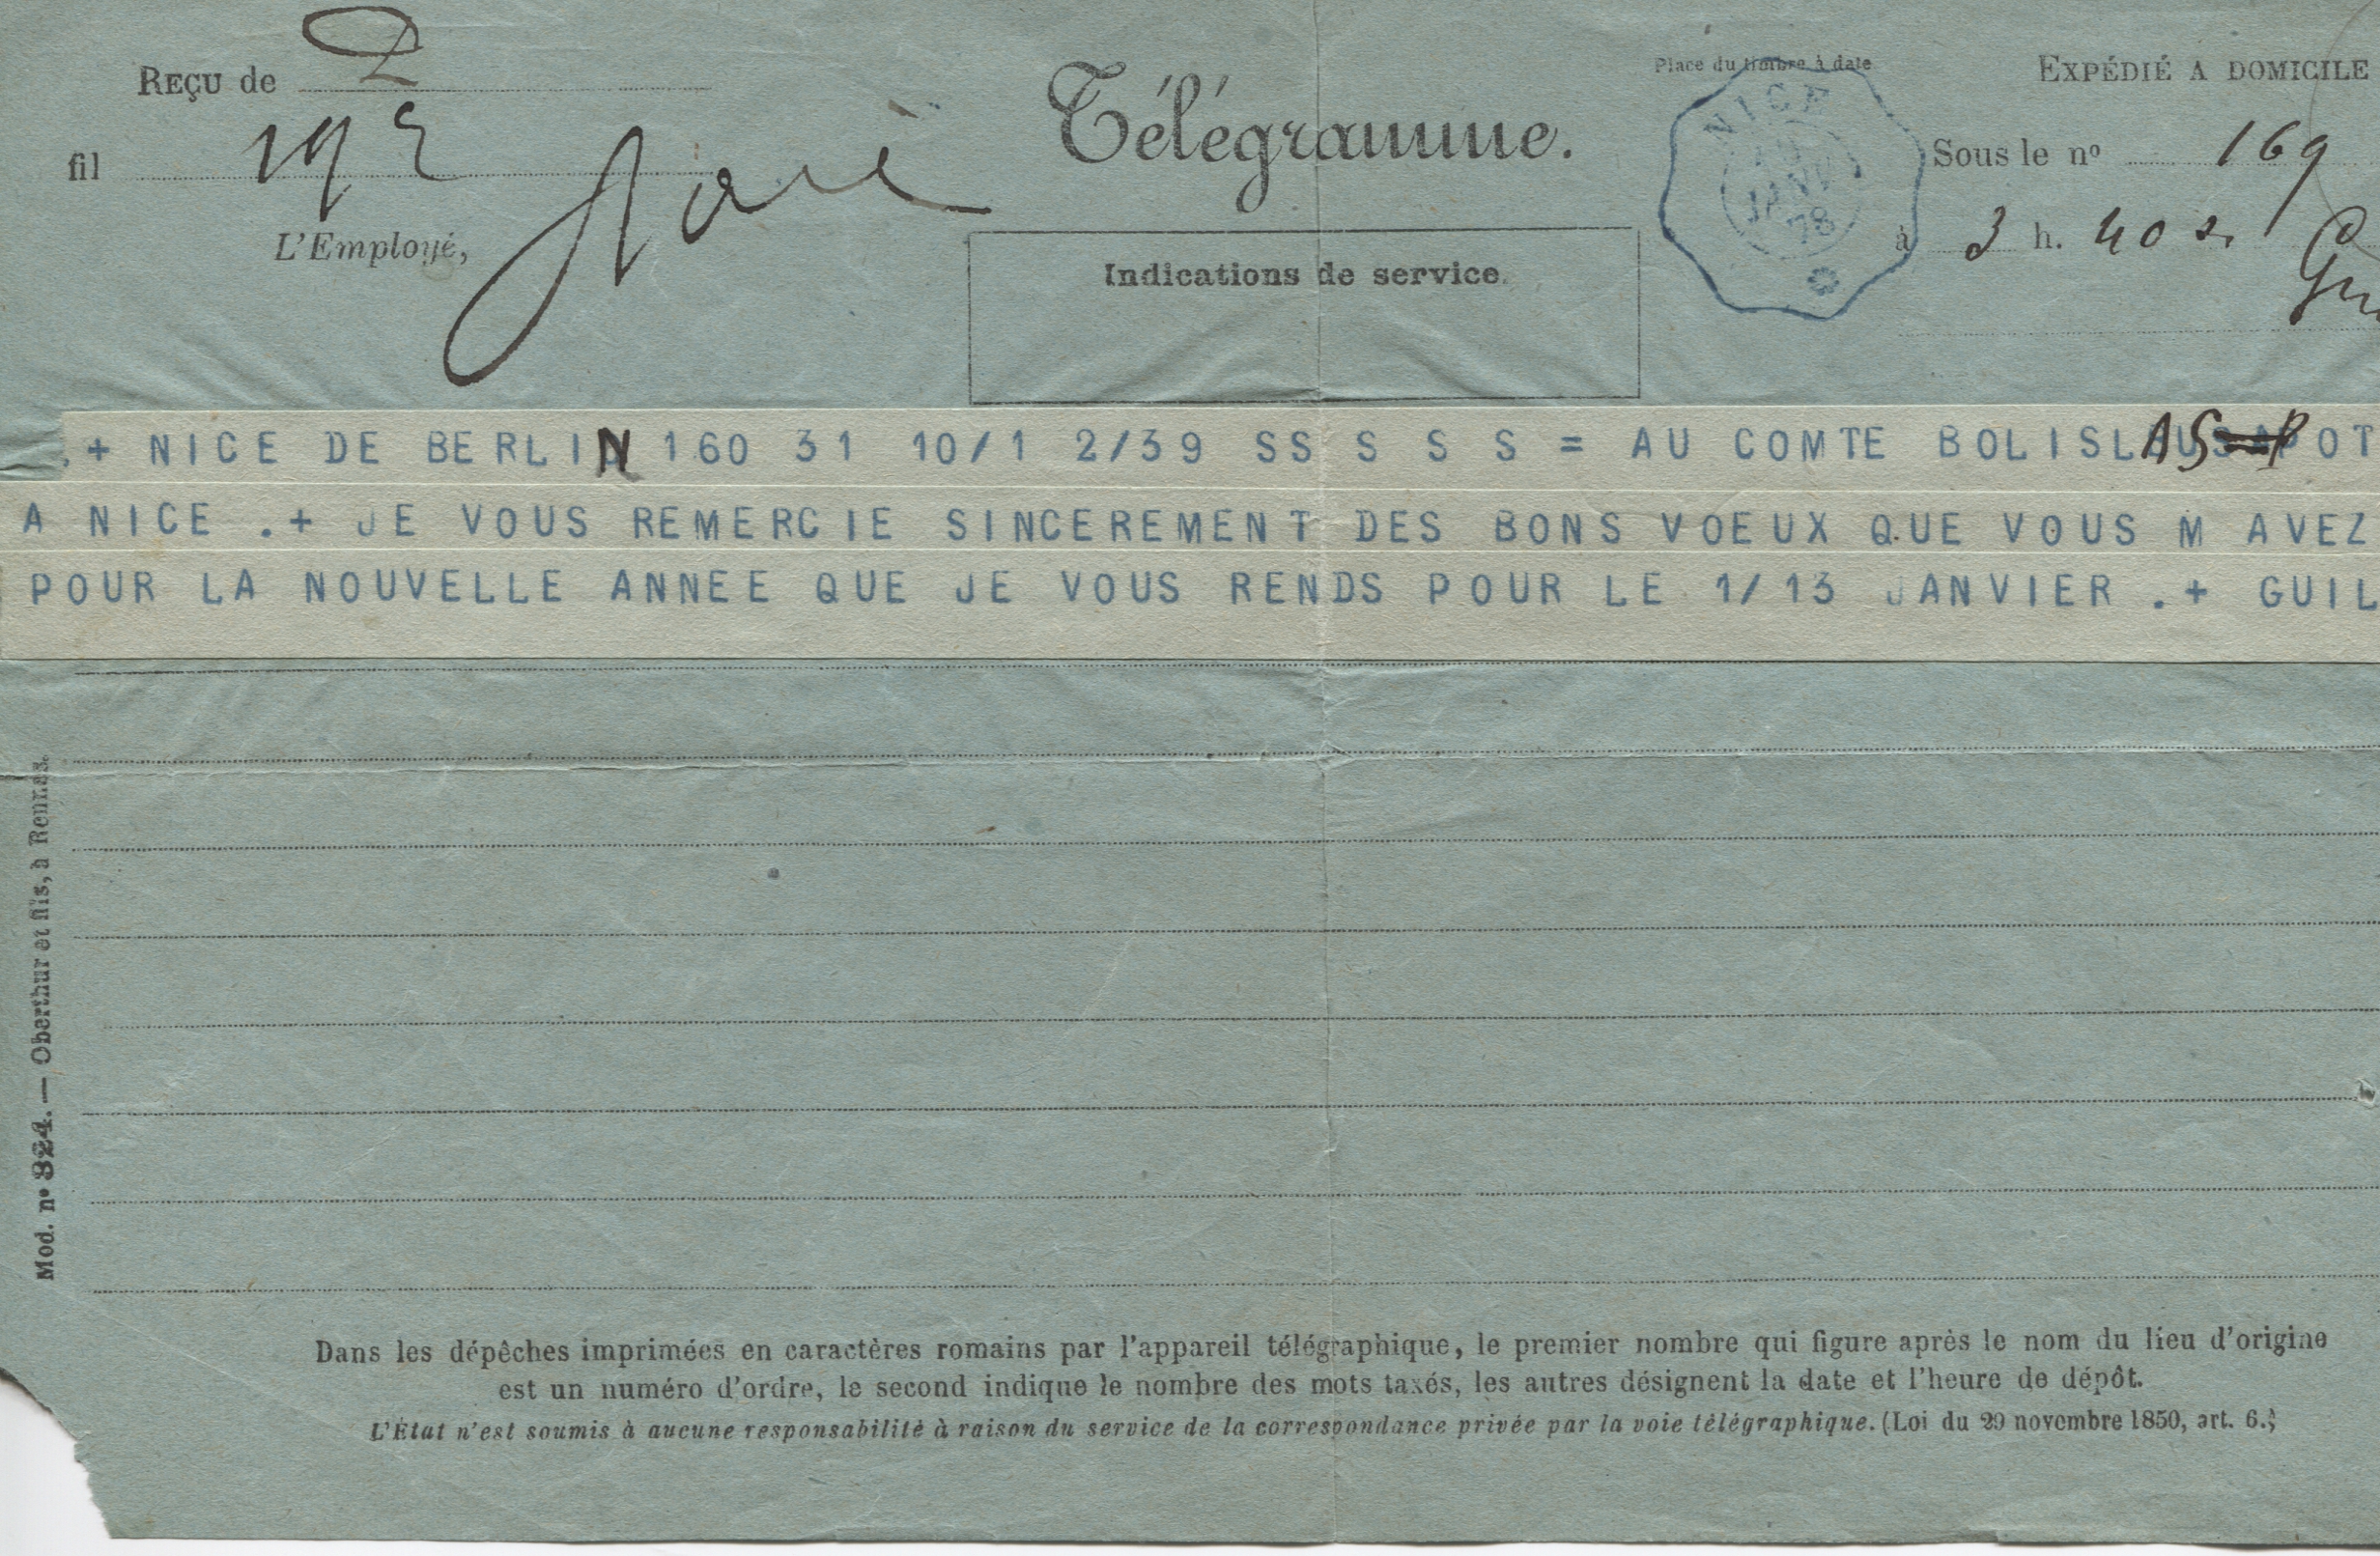 REÇU de
fil 192
L'Employé,
Télégramme.
Indications de service.
Place du timbre à date
NICE
JANV
78
EXPÉDIÉ A DOMICILE
Sous le nº 169
à 3 h. 40 s.
.+ NICE DE BERLIN 160 31 10/1 2/39 SS S S S = AU COMTE BOLISLAS POT
A NICE .+ JE VOUS REMERCIE SINCEREMENT DES BONS VOEUX QUE VOUS M AVEZ
POUR LA NOUVELLE ANNEE QUE JE VOUS RENDS POUR LE 1/13 JANVIER .+ GUIL
Mod. nº 324. — Oberthur et fils, à Rennes.
Dans les dépêches imprimées en caractères romains par l'appareil télégraphique, le premier nombre qui figure après le nom du lieu d'origine
est un numéro d'ordre, le second indique le nombre des mots taxés, les autres désignent la date et l'heure de dépôt.
L'État n'est soumis à aucune responsabilité à raison du service de la correspondance privée par la voie télégraphique. (Loi du 29 novembre 1850, art. 6.)